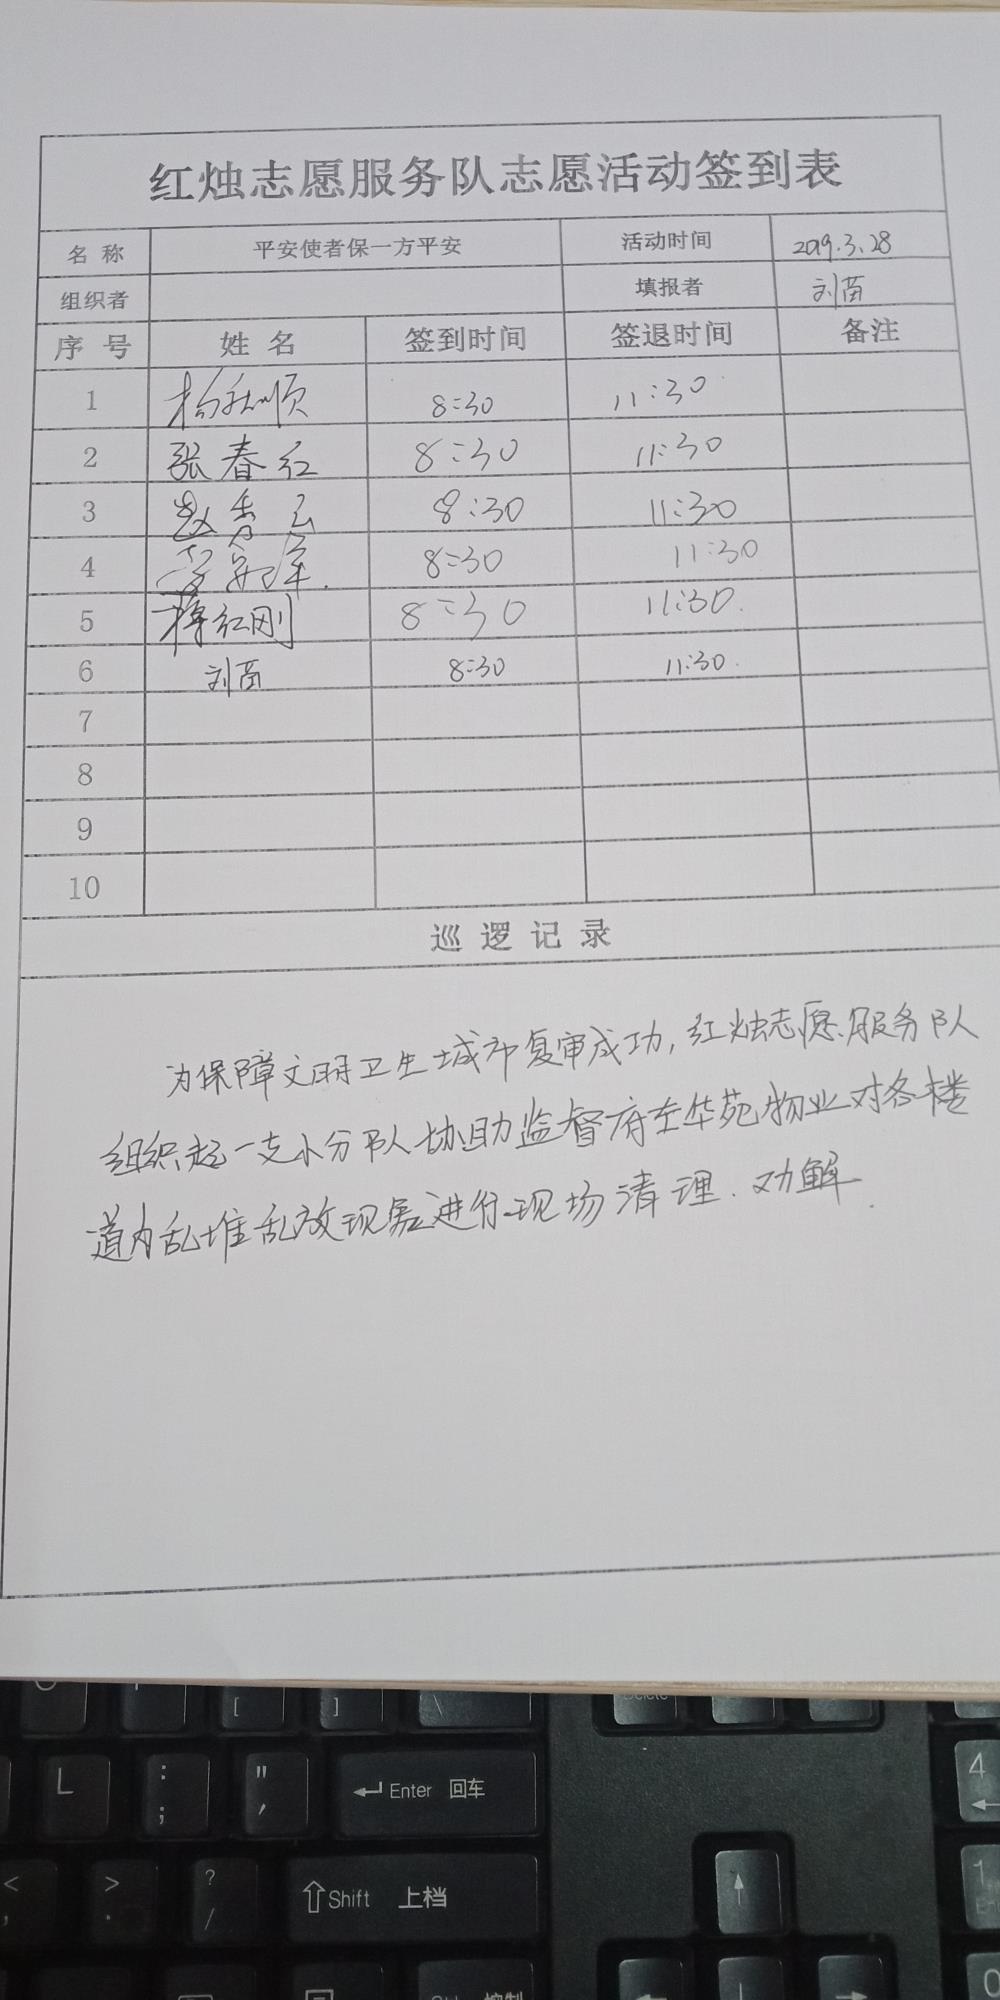 红烛志愿服务队志愿活动签到表
名 称 平安使者保一方平安 活动时间 2019.3.28
组织者 填报者 刘苗
序 号 姓 名 签到时间 签退时间 备注
1 杨秋顺 8:30 11:30
2 张春红 8:30 11:30
3 赵秀云 8:30 11:30
4 8:30 11:30
5 红刚 8:30 11:30
6 刘苗 8:30 11:30
7
8
9
10
巡 逻 记 录
为保障文明卫生城市复审成功,红烛志愿服务队
组织起一支小分队协助监督府左华苑物业对各楼
道内乱堆乱放现象进行现场清理、劝解.
[ ] \ Delete
L : ; " ' Enter 回车 4
< , > . ? / Shift 上档 1
0